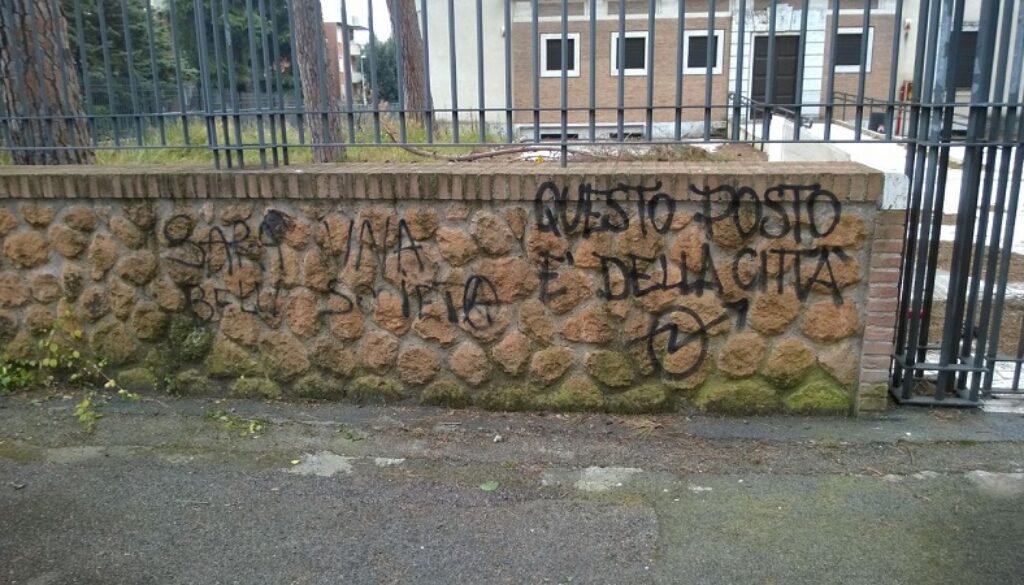 SARÀ UNA
BELLA SOCIETÀ
QUESTO POSTO
E' DELLA CITTÀ